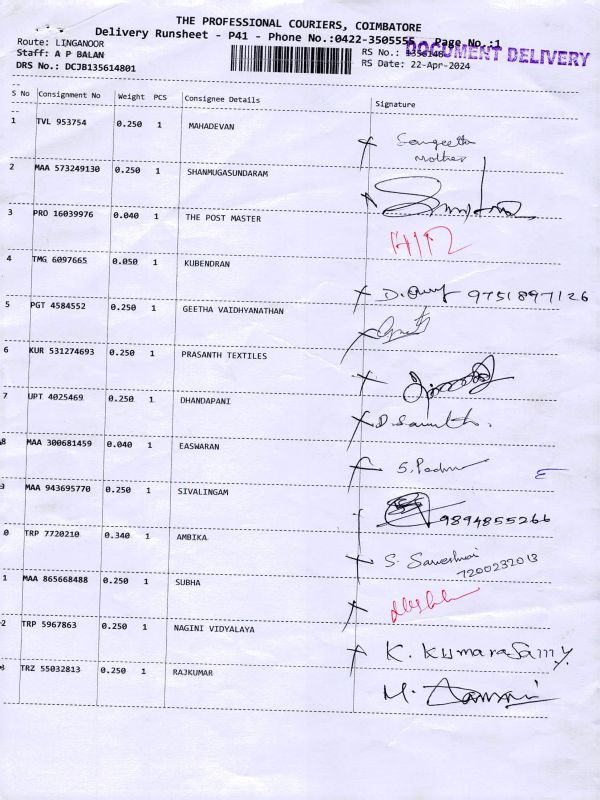 THE PROFESSIONAL COURIERS, COIMBATORE
Delivery Runsheet - P41 - Phone No.:0422-3505555 Page No.:1
DOCUMENT DELIVERY
Route: LINGANOOR
Staff: A P BALAN
DRS No.: DCJB135614801
RS No.: 1356148
RS Date: 22-Apr-2024
S No Consignment No Weight PCS Consignee Details Signature
1 TVL 953754 0.250 1 MAHADEVAN Sangeetha
mother
2 MAA 573249130 0.250 1 SHANMUGASUNDARAM
3 PRO 16039976 0.040 1 THE POST MASTER
4 TMG 6097665 0.050 1 KUBENDRAN 9751897126
5 PGT 4584552 0.250 1 GEETHA VAIDHYANATHAN
6 KUR 531274693 0.250 1 PRASANTH TEXTILES
7 UPT 4025469 0.250 1 DHANDAPANI
8 MAA 300681459 0.040 1 EASWARAN S. Padma
9 MAA 943695770 0.250 1 SIVALINGAM 9894855266
0 TRP 7720210 0.340 1 AMBIKA S. Sarveshwari
7200232013
1 MAA 865668488 0.250 1 SUBHA
2 TRP 5967863 0.250 1 NAGINI VIDYALAYA K. Kumarasamy
3 TRZ 55032813 0.250 1 RAJKUMAR